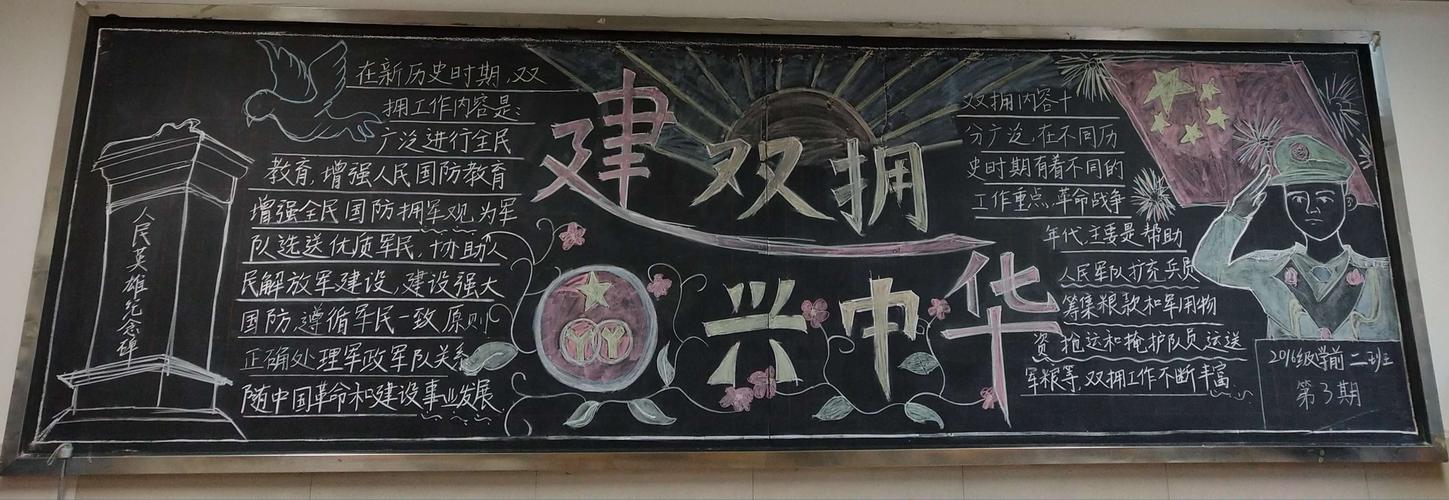 人民英雄纪念碑
在新历史时期,双
拥工作内容是:
广泛进行全民
教育,增强人民国防教育
增强全民国防拥军观,为军
队选送优质军民,协助人
民解放军建设,建设强大
国防,遵循军民一致原则
正确处理军政军队关系
随中国革命和建设事业发展.
建双拥
兴中华
YY
双拥内容十
分广泛,在不同历
史时期有着不同的
工作重点,革命战争
年代,主要是帮助
人民军队扩充兵员
筹集粮款和军用物
资,抢运和掩护队员,运送
军粮等,双拥工作不断丰富.
2016级学前二班
第3期